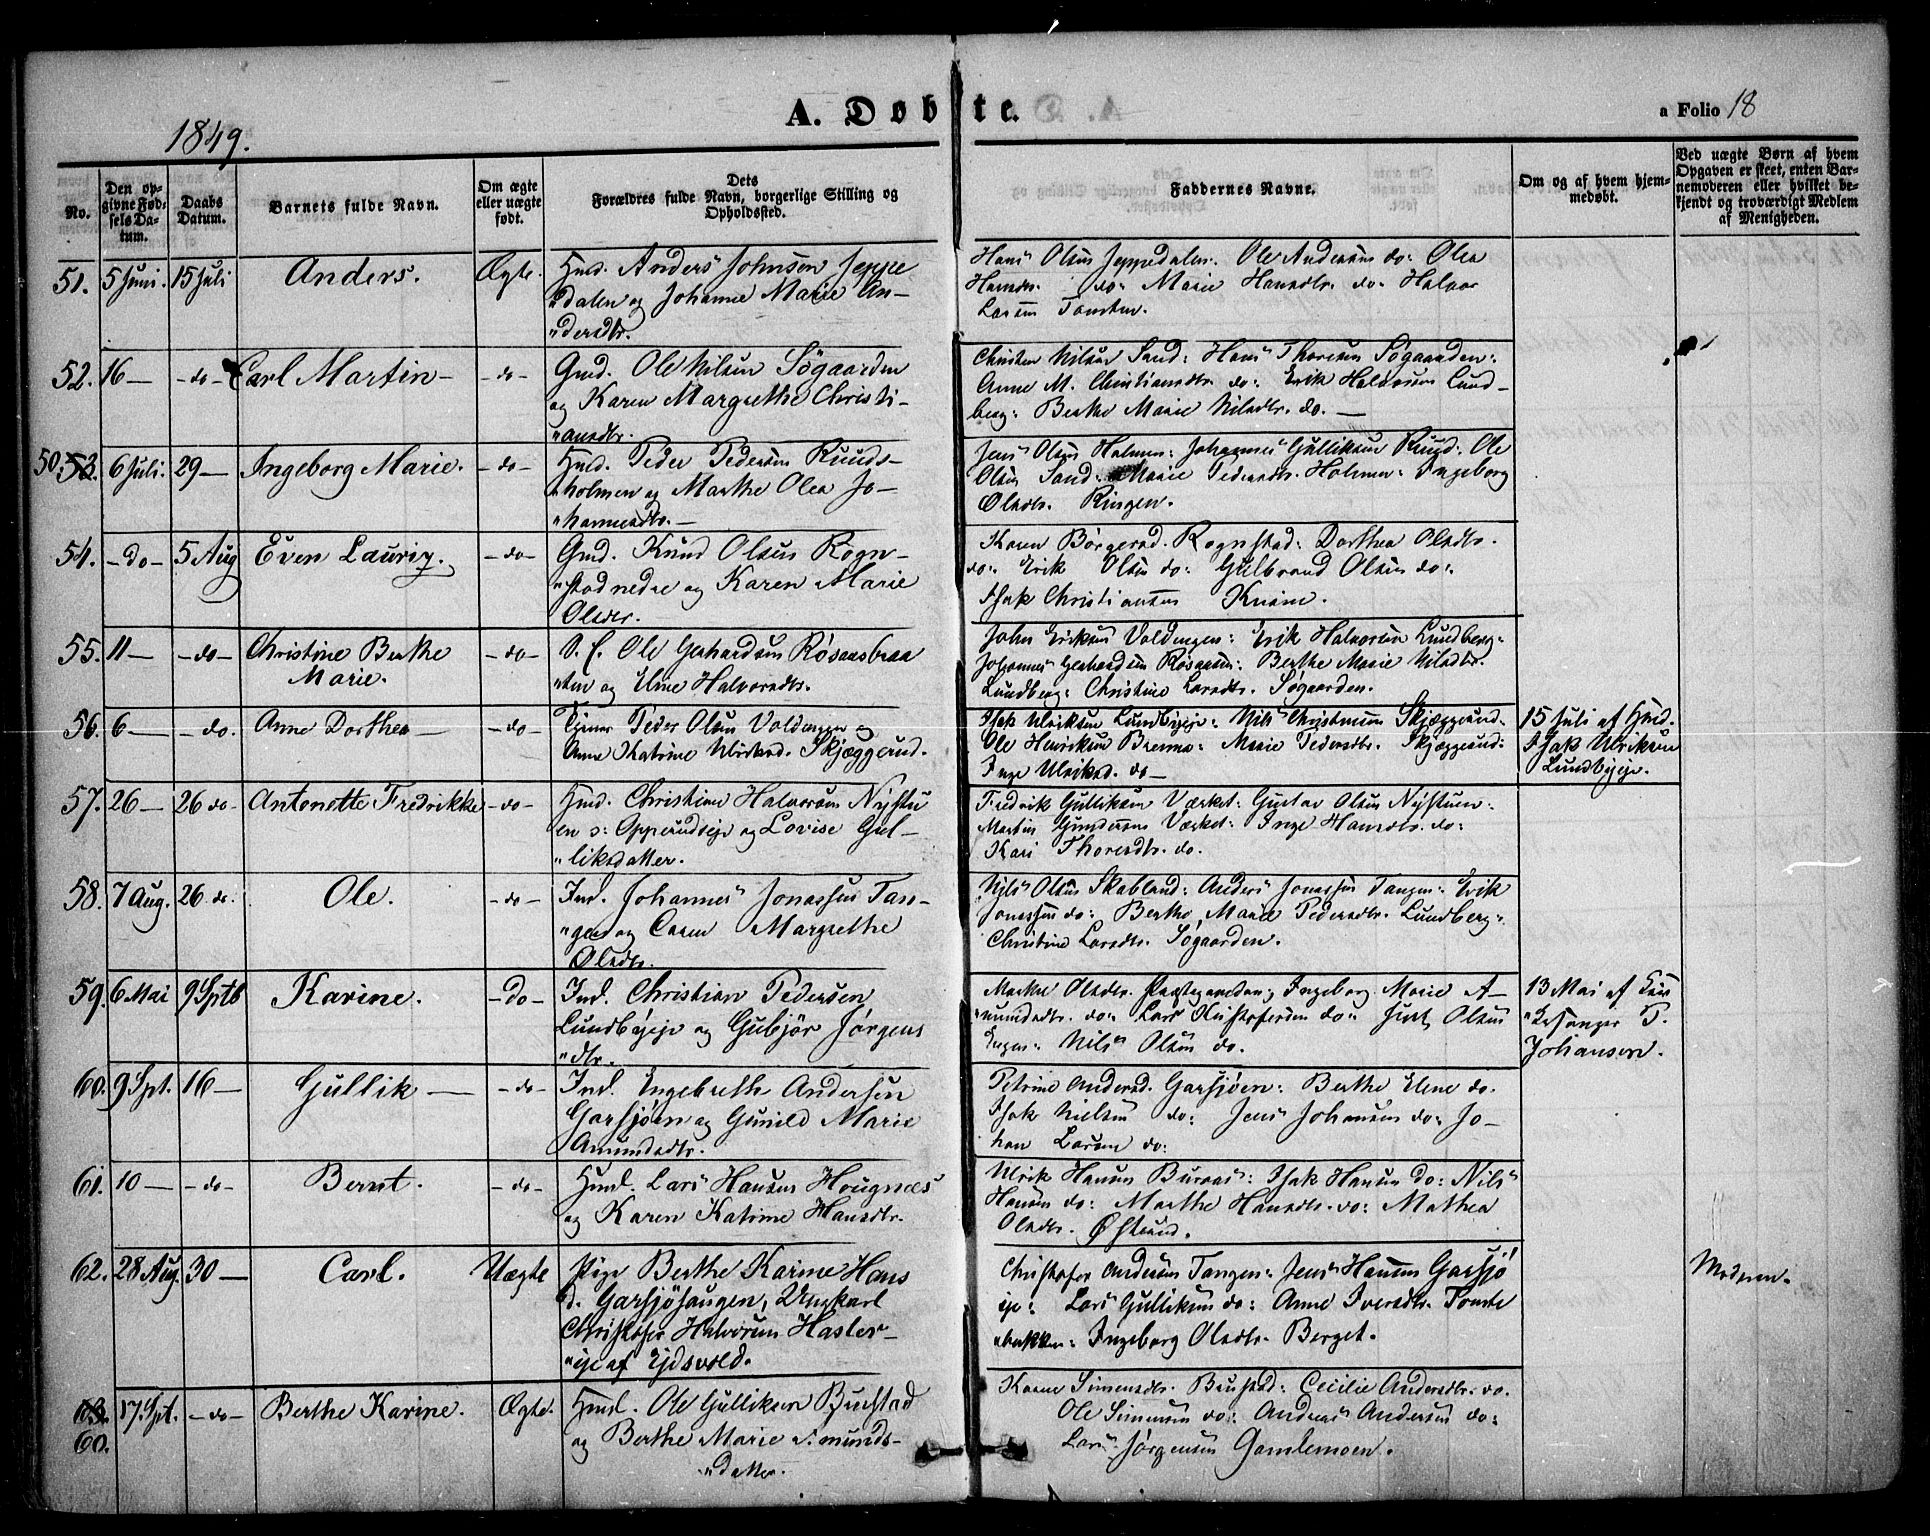 1849.
A. Døbte.
a Folio 18
No.
Den opgivne Fødsels Datum.
Daabs Datum.
Barnets fulde Navn.
Om ægte eller uægte født.
Dets Forældres fulde Navn, borgerlige Stilling og Opholdssted.
Faddernes Navne.
Om og af hvem hjemmedøbt.
Ved uægte Børn af hvem Opgaven er skeet, enten Barnemoderen eller hvilket bekjendt og troværdigt Medlem af Menigheden.
51. 5 Juni. 15 Juli Anders. Ægte. Huusmd. Anders Johnsen Jeppe
"dalen og Johanne Marie An-
"dersdtr.
Hans Olsen Jeppedalen: Ole Andersen do: Olea
Hansdtr. do: Marie Hansdtr. do: Halvor
Larsen Tomten.
52. 16 — -do- Carl Martin- -do- Gmd. Ole Nilsen Søgaarden
og Karen Margrethe Christi-
"ansdtr.
Christen Nilsen Sand: Hans Thoresen Søgaarden:
Anne M. Christiansdtr. do: Erik Halvorsen Lund-
berg: Berthe Marie Nilsdtr. do. —
50. 53. 6 Juli. 29 — Ingeborg Marie. -do- Huusmd. Peder Pedersen Ruuds-
"holmen og Marthe Olea Jo-
"hannesdtr. —
Jens Olsen Holmen: Johannes Gulliksen Ruud: Ole
Olsen Sand: Marie Pedersdtr. Holmen: Ingeborg
Olsdtr. Ringen.
54. -do- 5 Aug Even Lauriz. -do- Gmd. Knud Olsen Rogn-
"stad nedre og Karen Marie
Olsdtr.
Karen Børgersd. Rognstad: Dorthea Olsdtr.
do: Erik Olsen do: Gulbrand Olsen do:
Isak Christiansen
55. 11 — -do- Christine Berthe
Marie. -do- Ole Gerhardsen Røsaasbraa
"ten og Eline Halvorsdtr.
John Eriksen Voldengen: Erik Halvorsen Lundberg:
Johannes Gerhardsen Røsaasen: Berthe Marie Nilsdtr.
Lundberg: Christine Larsdtr. Søgaarden.
56. 6 — -do. Anne Dorthea — -do- Tjener Peder Olsen Voldengen og
Anne Kathrine Ulriksd. Skjæggerud.
Isak Ulriksen Lundbyeje: Nils Christensen Skjæggerud:
Ole Henriksen Brenna: Marie Pedersdtr. Skjæggerud:
Inge Ulriksd. do —
15 Juli af Huusmd.
Isak Ulriksen
Lundbyeje.
57. 26 — 26 do Antonette Fredrikke -do- Huusmd. Christian Halvorsen Nystu
"en s: Opperudeje og Lovise Gul-
"liksdatter.
Fredrik Gulliksen Værket: Gustav Olsen Nystuen:
Martin Gundersen Værket: Inge Hansdtr. do:
Kari Thoresdtr. do.
58. 7 Aug. 26 do. Ole. -do- Ind. Johannes Jonassen Tan-
"gen og Caren Margrethe
Olsdtr.
Nils Olsen Skabland: Anders Jonassen Tangen: Erik
Jonassen do: Berthe Marie Pedersdtr. Lundberg:
Christine Larsdtr. Søgaarden.
59. 6 Mai 9 Sptb Karine. -Do- Ind. Christian Pedersen
Lundbyeje og Gubjør Jørgens
"dtr.
Marthe Olsdtr. Præstegaarden; Ingeborg Marie A-
"mundsdtr. do: Lars Christofersen do: Olsen
Engen: Nils Olsen do.
13 Mai af Kir
"kesanger P.
Johansen.
60. 9 Spt. 16 — Gullik — -do- Ind. Engebreth Andersen
Garsjøen og Gunild Marie
Amundsdtr.
Petrine Andersd. Garsjøen: Berthe Elene do.
Isak Nielsen do: Jens Johansen do: Jo-
han Larsen do:
61. 10 — -do- Bernt. -do- Huusmd. Lars Hansen Hougnæs
og Karen Katrine Hansdtr.
Ulrik Hansen Buraas: Isak Hansen do: Nils
Hansen do: Marthe Hansdtr. do: Mathea
Olsdtr. Østerud.
62. 28 Aug. 30 — Carl. Uægte Pige Berthe Karine Hans
d. Garsjøhaugen, Ungkarl
Christofer Halvorsen Hasler-
"eje af Ejdsvold.
Christofer Andersen Tangen: Jens Hansen Garsjø
eje: Lars Gulliksen do: Anne Iversdtr. Tomte
"bakken: Ingeborg Olsdtr. Berget.
Moderen.
63. 60. 17. Spt. -do- Berthe Karine. Ægte. Huusmd. Ole Gulliksen Brustad
og Berthe Marie Simunds-
"datter.
Karen Simensdtr. Brustad: Cecilie Andersdtr. do.
Ole Simensen do: Andreas Andersen do:
Lars Jørgensen Gamlemoen.